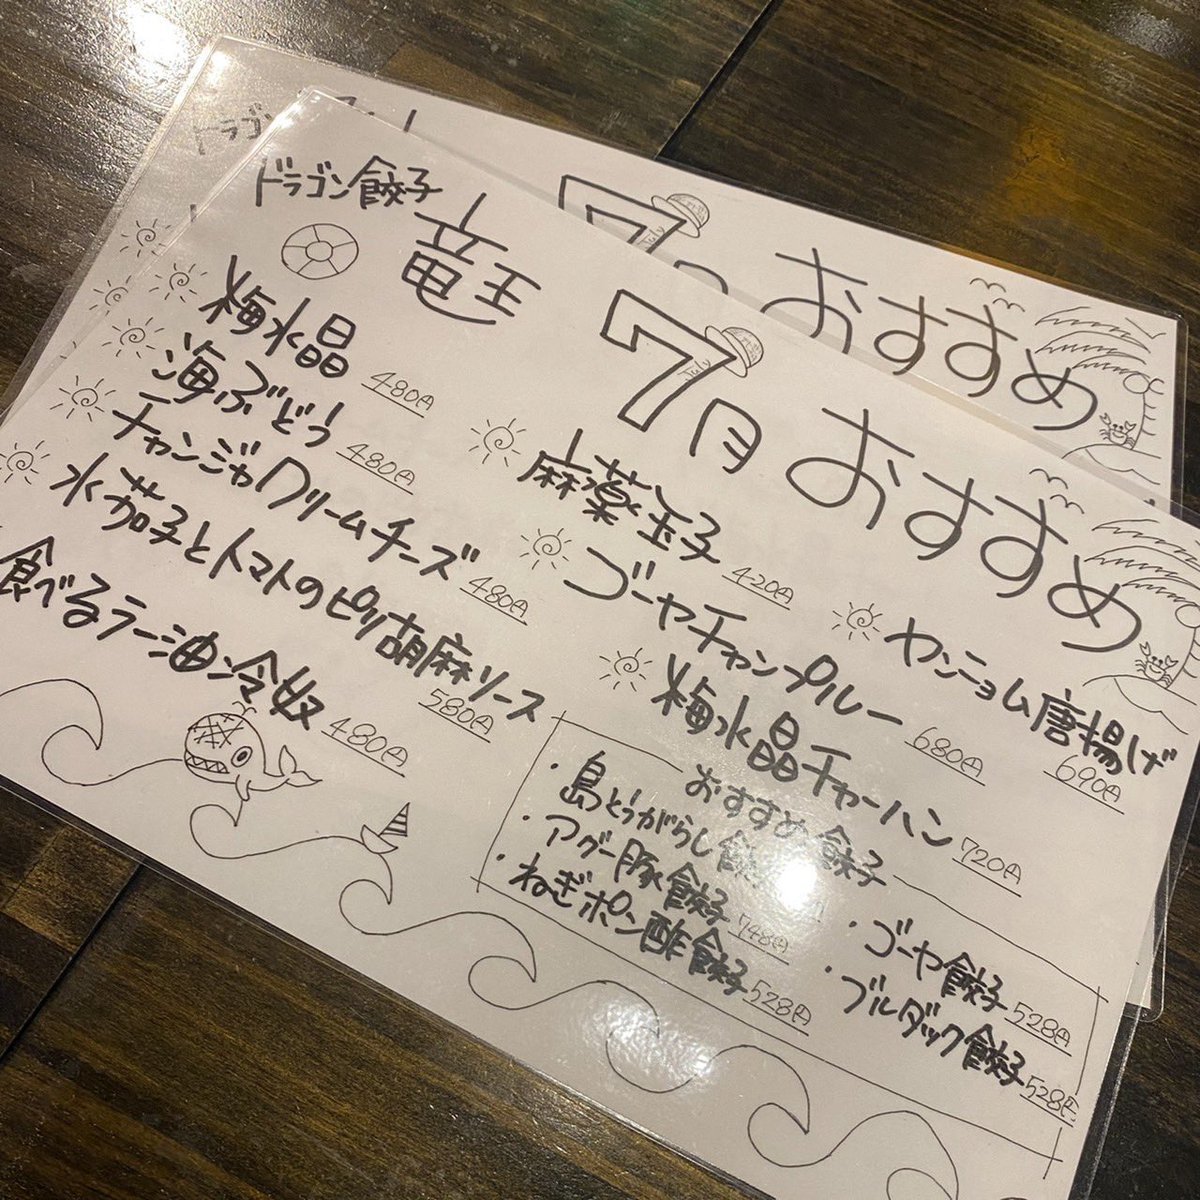 ドラゴン
7月
July
おすすめ
ドラゴン餃子
竜王
7月
July
おすすめ
梅水晶 480円
海ぶどう 480円
チャンジャクリームチーズ 480円
水茄子とトマトのピリ胡麻ソース 580円
食べるラー油冷奴 480円
麻薬玉子 420円
ゴーヤチャンプルー 680円
梅水晶チャーハン 720円
ヤンニョム唐揚げ 690円
おすすめ餃子
・島とうがらし餃子
・アグー豚餃子 748円
・ねぎポン酢餃子 528円
・ゴーヤ餃子 528円
・ブルダック餃子 528円